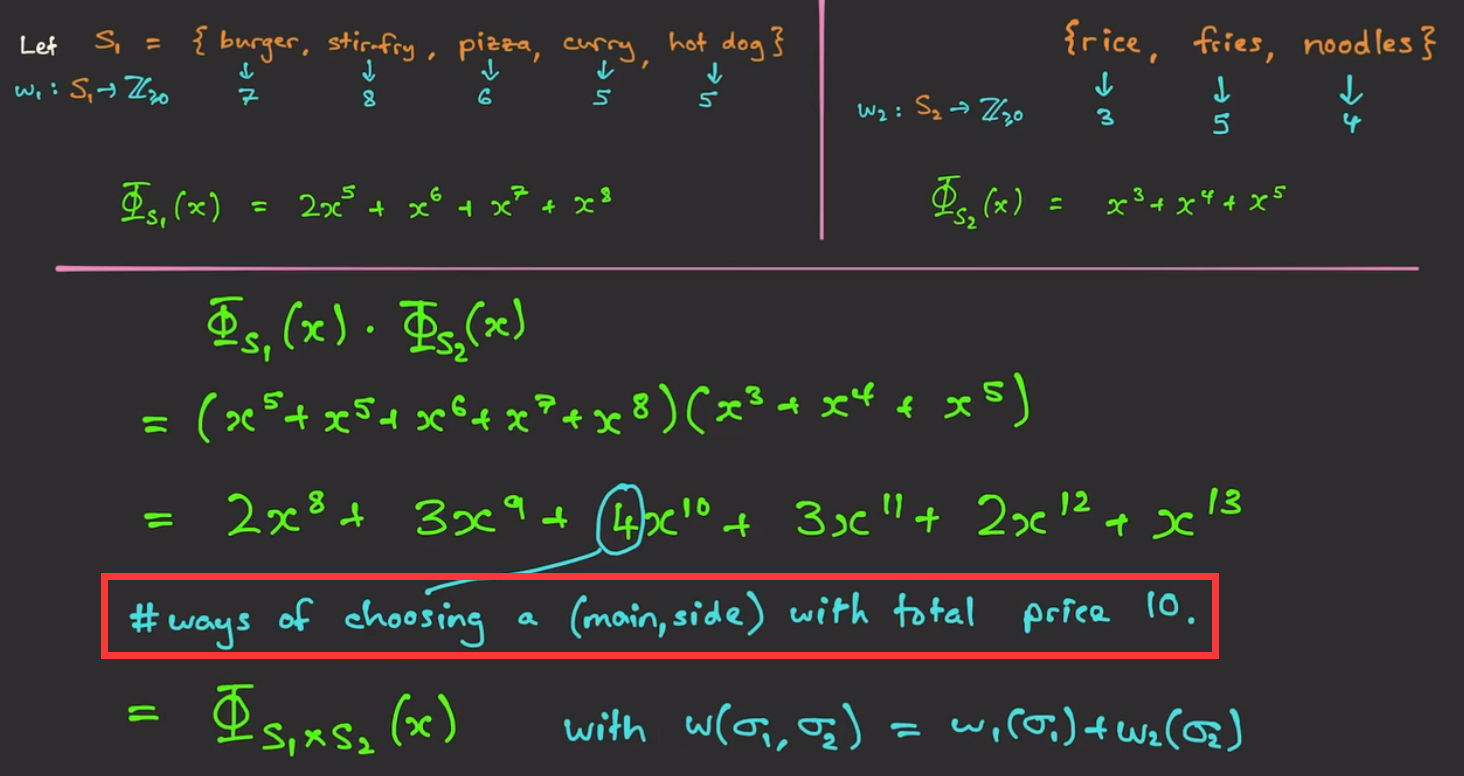 Let S₁ = { burger, stir-fry, pizza, curry, hot dog }
↓ ↓ ↓ ↓ ↓
w₁ : S₁ → ℤ≥0 7 8 6 5 5
Φ_S₁(x) = 2x⁵ + x⁶ + x⁷ + x⁸
{rice, fries, noodles}
↓ ↓ ↓
w₂ : S₂ → ℤ≥0 3 5 4
Φ_S₂(x) = x³ + x⁴ + x⁵
Φ_S₁(x) · Φ_S₂(x)
= (x⁵ + x⁵ + x⁶ + x⁷ + x⁸)(x³ + x⁴ + x⁵)
= 2x⁸ + 3x⁹ + 4x¹⁰ + 3x¹¹ + 2x¹² + x¹³
#ways of choosing a (main, side) with total price 10.
= Φ_S₁×S₂(x) with w(σ₁, σ₂) = w₁(σ₁) + w₂(σ₂)